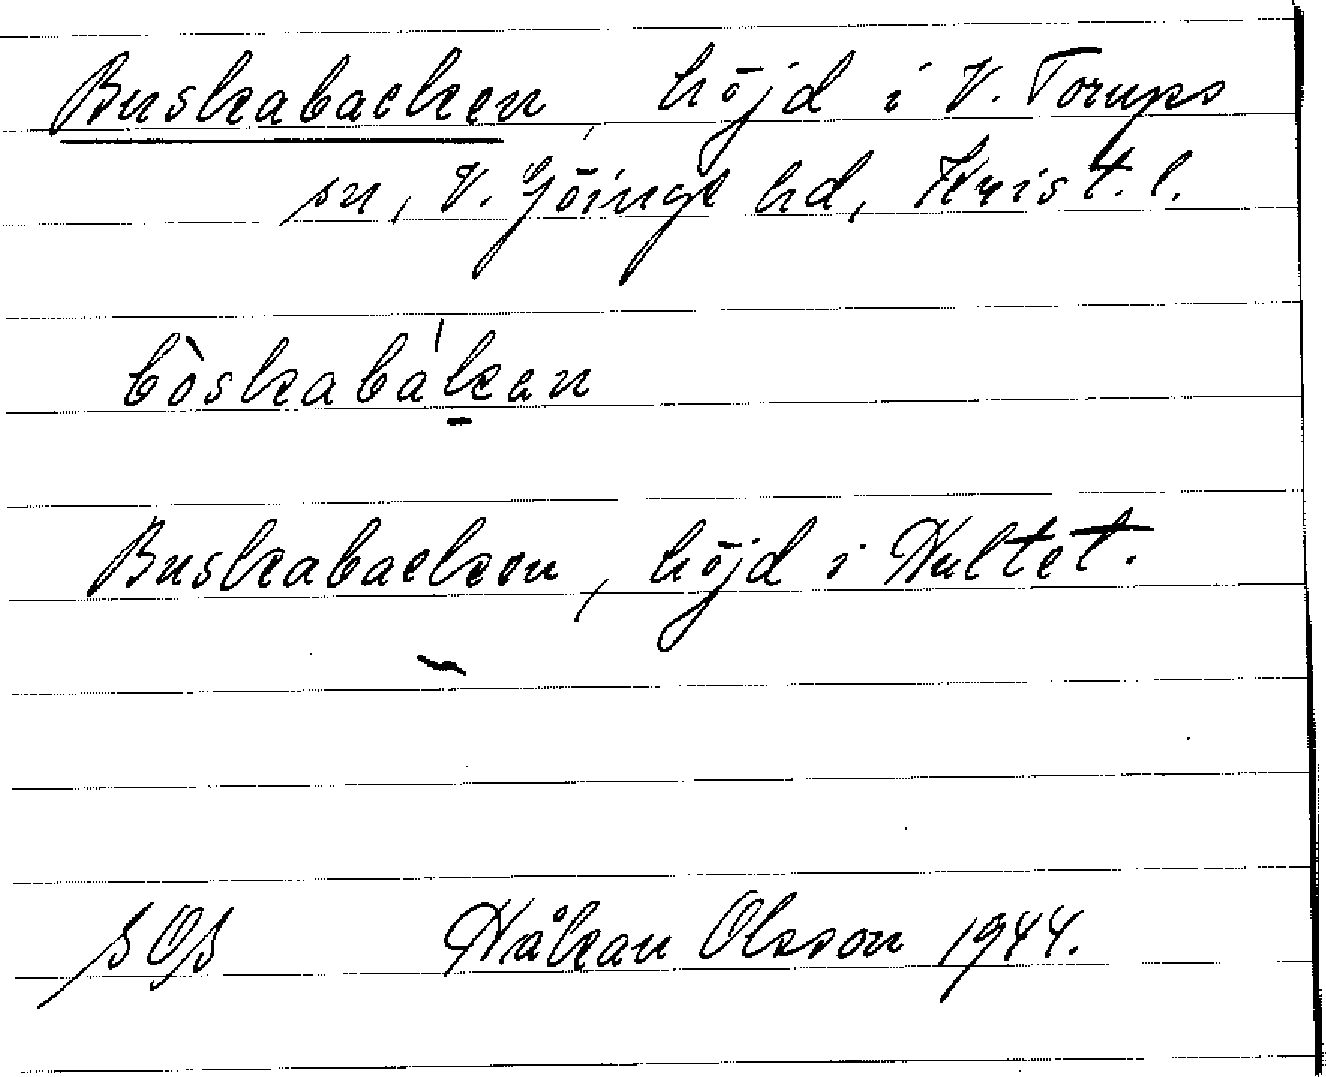 Buskabacken, höjd i V. Torups
sn, V. Göinge hd, Krist. l.
bòskabákan
Buskabacken, höjd i Hultet.
SOS Håkan Olsson 1944.